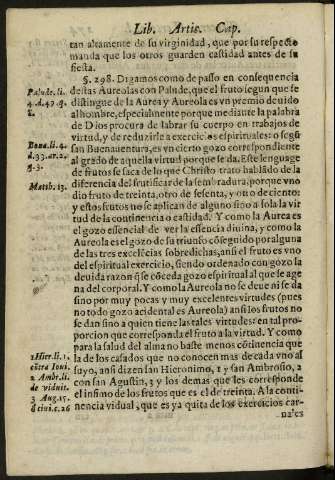 Lib. Artic. Cap.
tan altamente de su virginidad, que por su respecto
manda que los otros guarden castidad antes de su
fiesta.
§. 298. Digamos como de passo en consequencia
Palude. li.
4. d. 49. q.
destas Aureolas con Palude, que el fruto segun que se
distingue de la Aurea y Aureola es vn premio deuido
al hombre, especialmente porque mediante la palabra
de Dios procura de labrar su cuerpo en trabajos de
virtud, y de reduzirle a exercicios espirituales: o segũ
Bona. li. 4.
d. 33. ar. 2.
q. 3.
san Buenauentura, es vn cierto gozo correspondiente
al grado de aquella virtud porque se da. Este lenguage
de frutos se saca de lo que Christo trato hablãdo de la
Matth. 13.
diferencia del frutificar de la sembradura, porque vno
dio fruto de treinta, otro de sesenta, y otro de ciento:
y estos frutos no se aplican de alguno sino a sola la vir
tud de la continencia o castidad. Y como la Aurea es
el gozo essencial de ver la essencia diuina, y como la
Aureola es el gozo de su triunfo cõseguido por alguna
de las tres excelẽcias sobredichas, ansi el fruto es vno
del espiritual exercicio, siendo ordenado con gozo la
deuida razon q̃ se cõceda gozo espiritual al que le age
na del corporal. Y como la Aureola no se deue ni se da
sino por muy pocas y muy excelentes virtudes (pues
no todo gozo acidental es Aureola) ansi los frutos no
se dan sino a quien tiene las tales virtudes: en tal pro-
porcion que corresponda el fruto a la virtud. Y como
para la salud del alma no baste menos cõtinencia que
1 Hier. li. 1.
cõtra Ioui.
2 Ambr. li.
de viduit.
3 Aug. 15.
d ciui. c. 26
la de los casados que no conocen mas de cada vno al
suyo, ansi dizen san Hieronimo, 1 y san Ambrosio, 2
con san Agustin, 3 y los demas que les corresponde
el infimo de los frutos que es el de treinta. A la conti-
nencia vidual, que es ya quita de los exercicios car-
nales